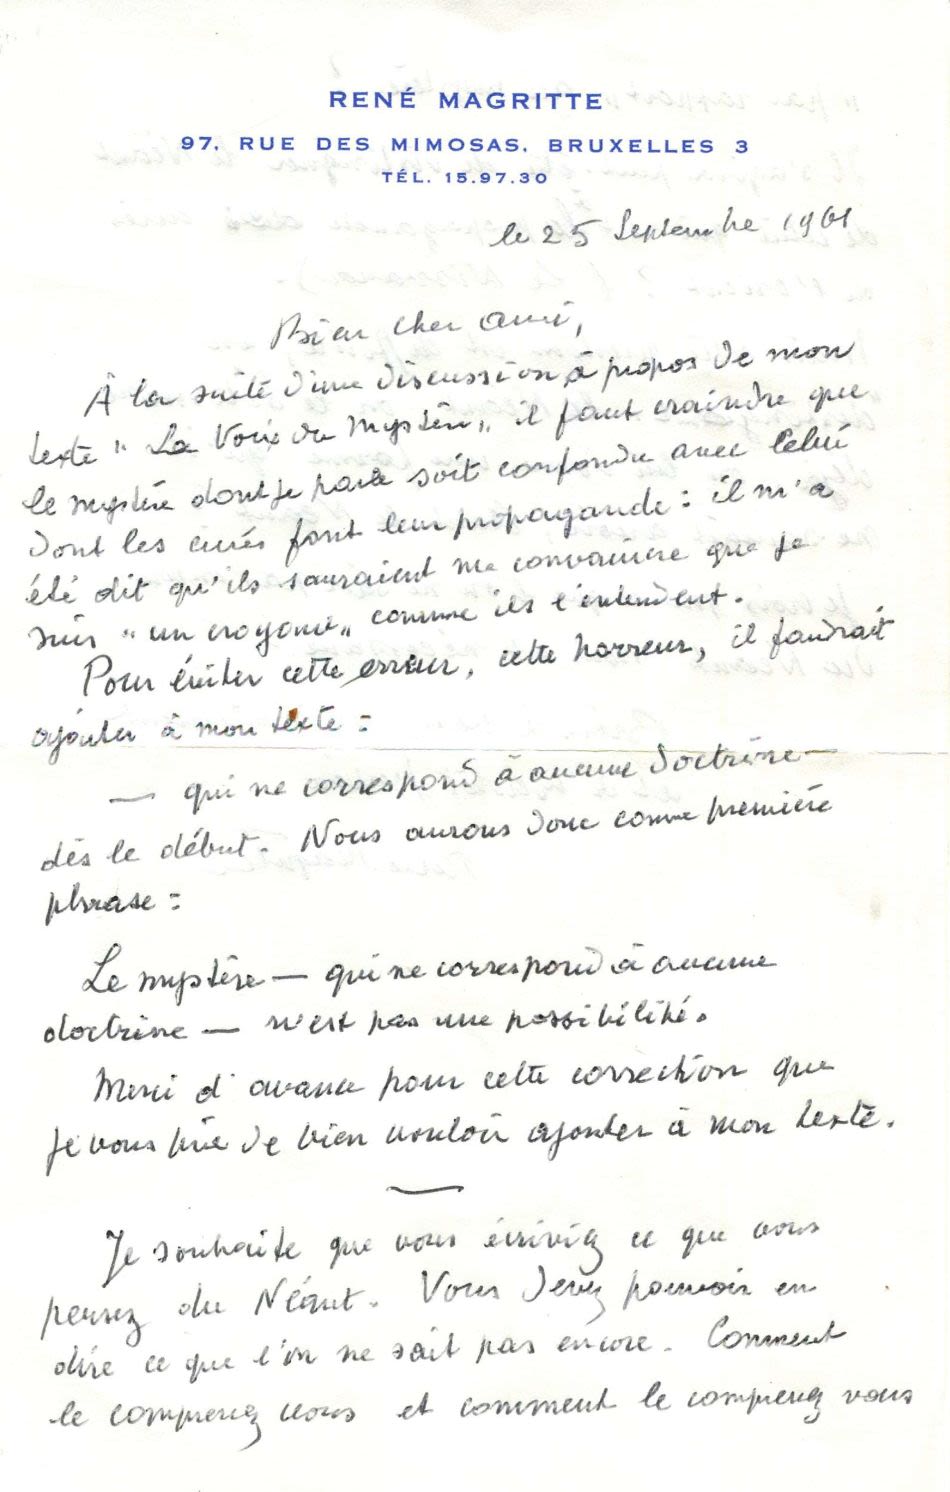 RENÉ MAGRITTE
97, RUE DES MIMOSAS, BRUXELLES 3
TÉL. 15.97.30
le 25 Septembre 1961
Bien cher Ami,
À la suite d'une discussion à propos de mon
texte "La Voix du Mystère", il faut craindre que
le mystère dont je parle soit confondu avec celui
dont les curés font leur propagande : il m'a
été dit qu'ils sauraient me convaincre que je
suis "un croyant" comme ils l'entendent.
Pour éviter cette erreur, cette horreur, il faudrait
ajouter à mon texte :
— qui ne correspond à aucune doctrine —
dès le début. Nous aurons donc comme première
phrase :
Le mystère — qui ne correspond à aucune
doctrine — n'est pas une possibilité.
Merci d'avance pour cette correction que
je vous prie de bien vouloir ajouter à mon texte.
—
Je souhaite que vous écriviez ce que vous
pensez du Néant. Vous devez pouvoir en
dire ce que l'on ne sait pas encore. Comment
le comprenez vous et comment le comprenez vous